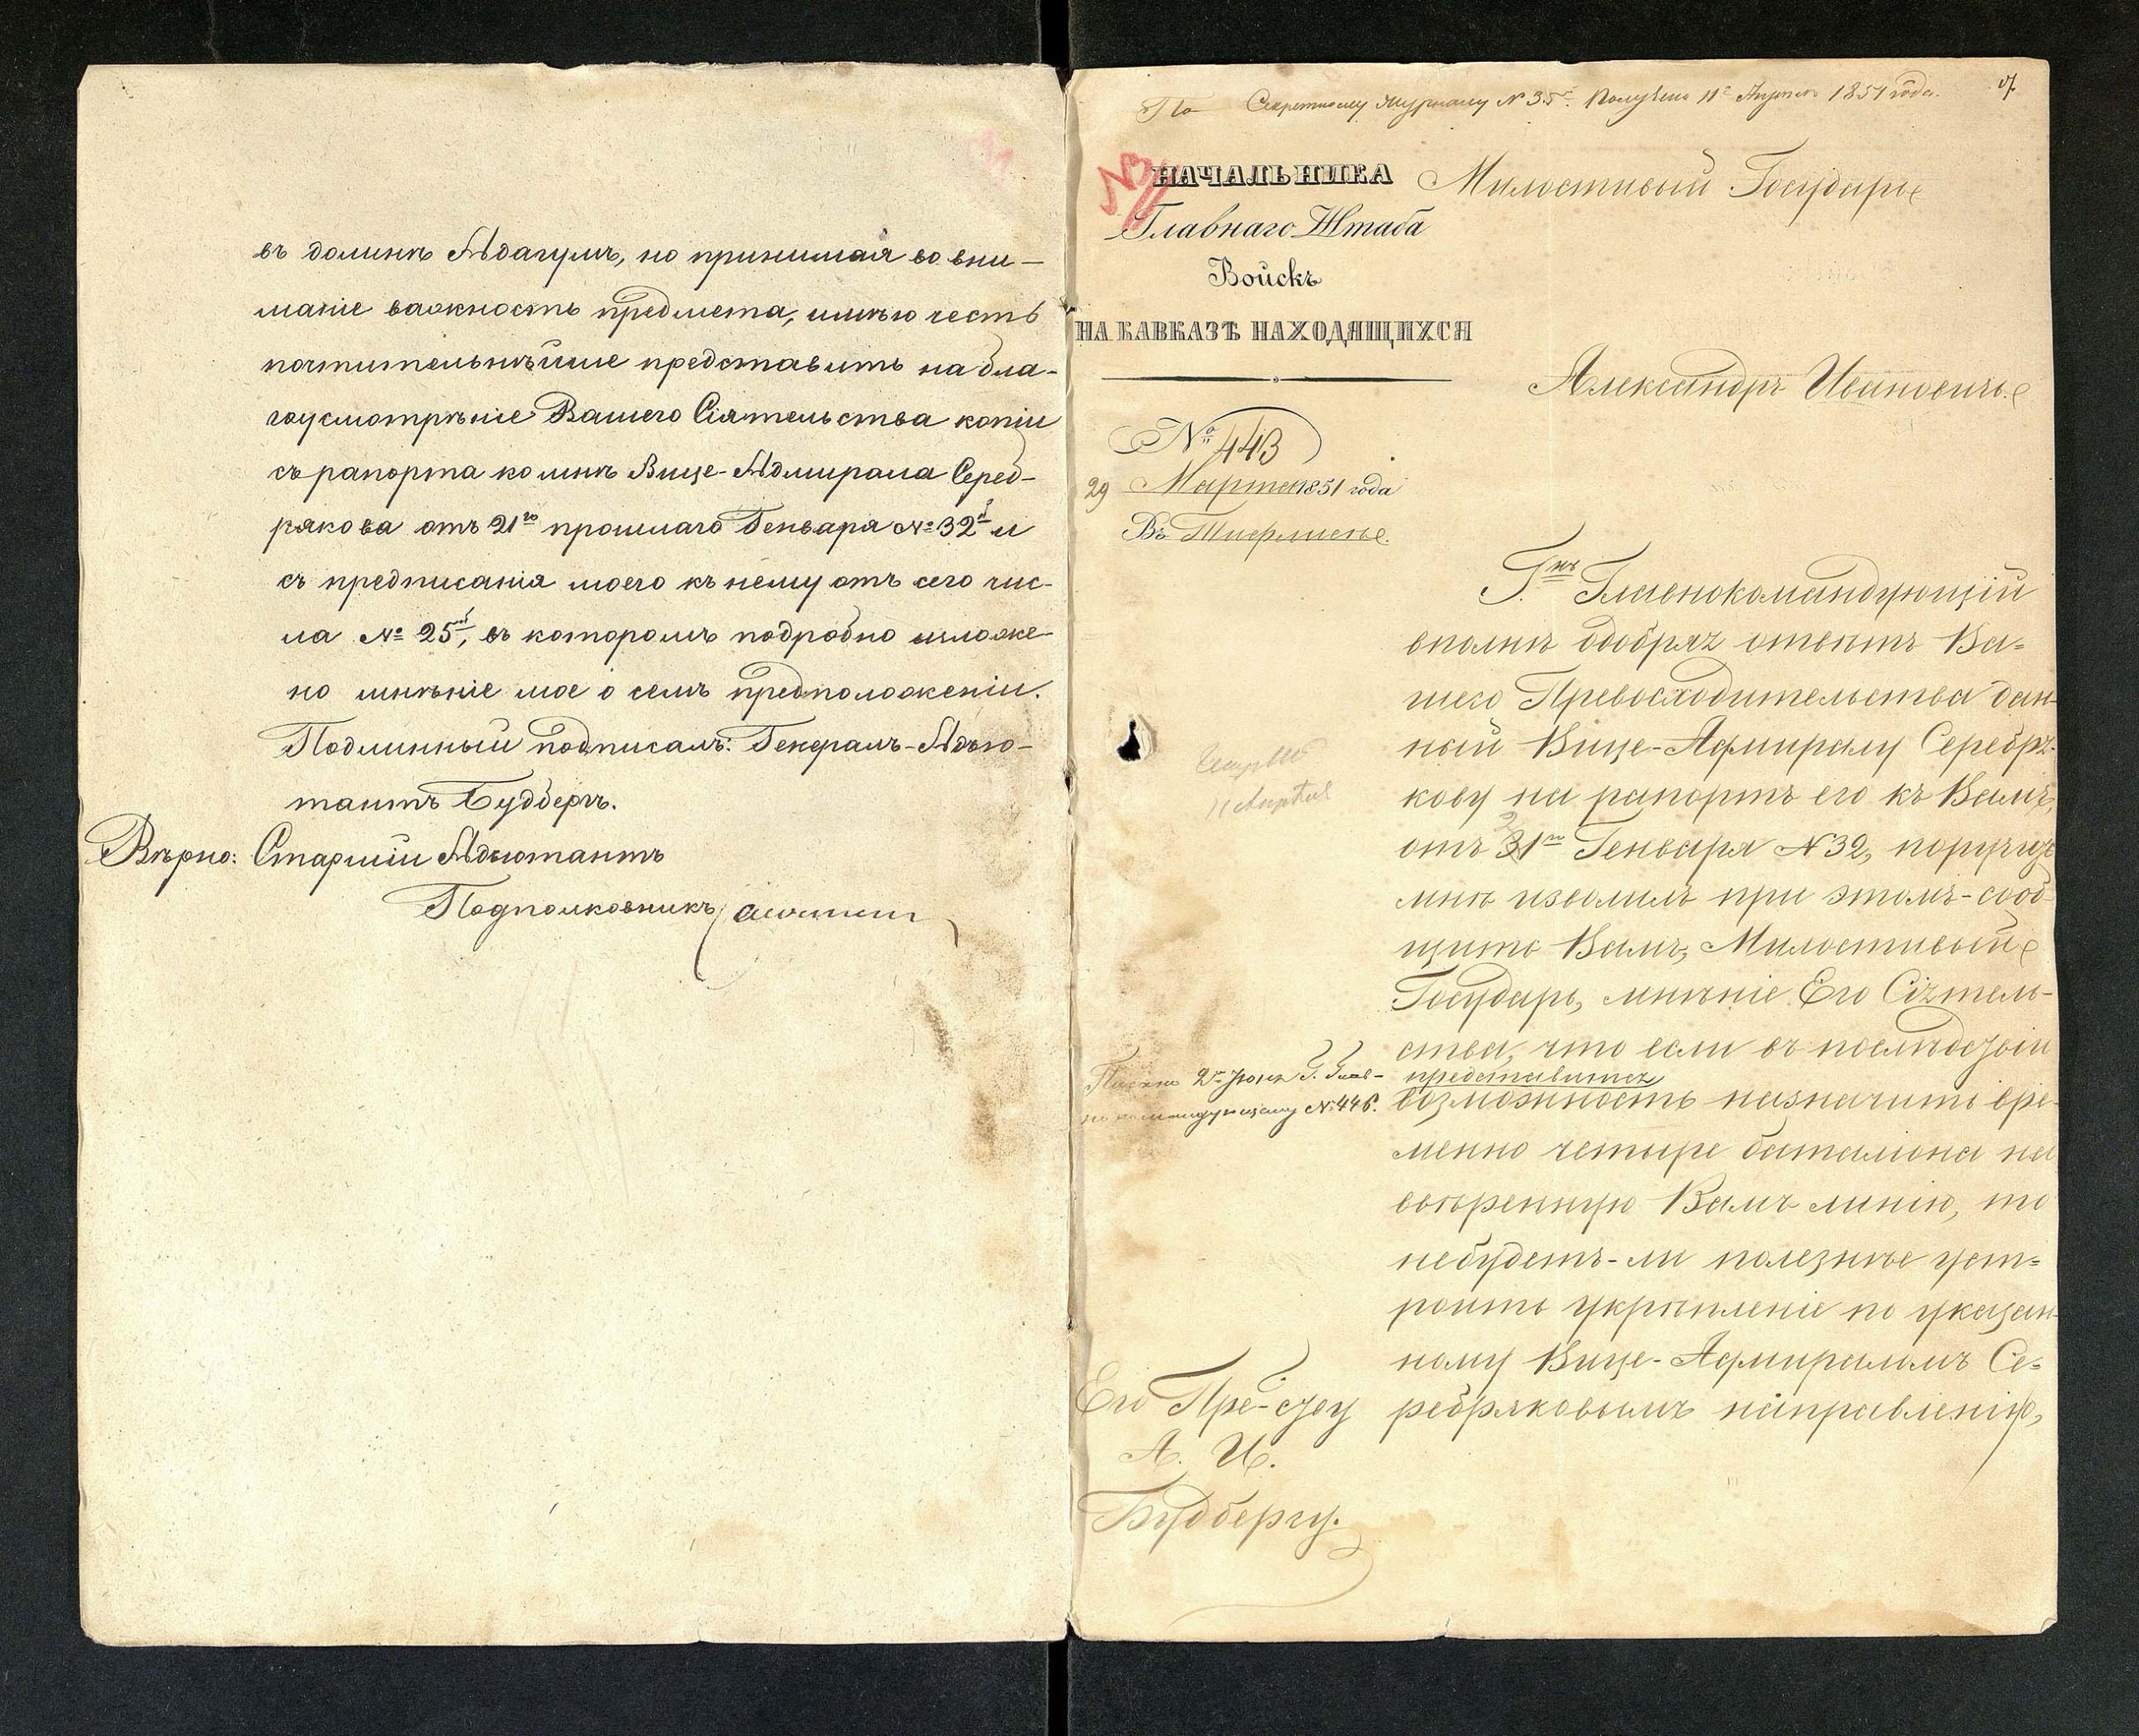 въ долинѣ Адагумъ, но принимая во вни-
маніе важность предмета, имѣю честь
почтительнѣйше представить на бла-
гоусмотрѣніе Вашего Сіятельства копіи
съ рапорта ко мнѣ Вице-Адмирала Сереб-
рякова отъ 21го прошлаго Генваря № 32й и
съ предписанія моего къ нему отъ сего чис-
ла № 25й, въ которомъ подробно изложе-
но мнѣніе мое о семъ предположеніи.
Подлинный подписалъ: Генералъ-Адъю-
тантъ Будбергъ.
Вѣрно: Старшій Адъютантъ
Подполковникъ
По Секретному журналу № 35. Получено 11го Апрѣля 1851 года.
НАЧАЛЬНИКА
Главнаго Штаба
Войскъ
НА КАВКАЗѢ НАХОДЯЩИХСЯ
№ 443
29 Марта 1851 года
Въ Тифлисѣ.
Милостивый Государь
Александръ Ивановичъ.
Г.нъ Главнокомандующій
вполнѣ одобряя отвѣтъ Ва-
шего Превосходительства дан-
ный Вице-Адмиралу Серебря-
кову на рапортъ его къ Вамъ,
отъ 21го Генваря № 32, поручить
мнѣ изволилъ при этомъ-сооб-
щить Вамъ, Милостивый
Государь, мнѣніе Его Сіятель-
ства, что если въ послѣдствіи
представится
возможность назначить вре-
менно четыре баталіона на
ввѣренную Вамъ линію, то
небудетъ-ли полезнѣе уст-
роить укрѣпленіе по указан-
ному Вице-Адмираломъ Се-
ребряковымъ направленію,
11 Апрѣля
Писано 2го Іюня Г. Глав-
нокомандующему № 446.
Его Пре-ству
А. И.
Будбергу.